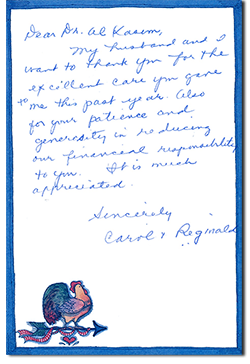 Dear Dr. Al Kasim,
My husband and I
want to thank you for the
excellent care you gave
to me this past year. Also
for your patience and
generosity in reducing
our financial responsibility
to you. It is much
appreciated.
Sincerely
Carol & Reginald